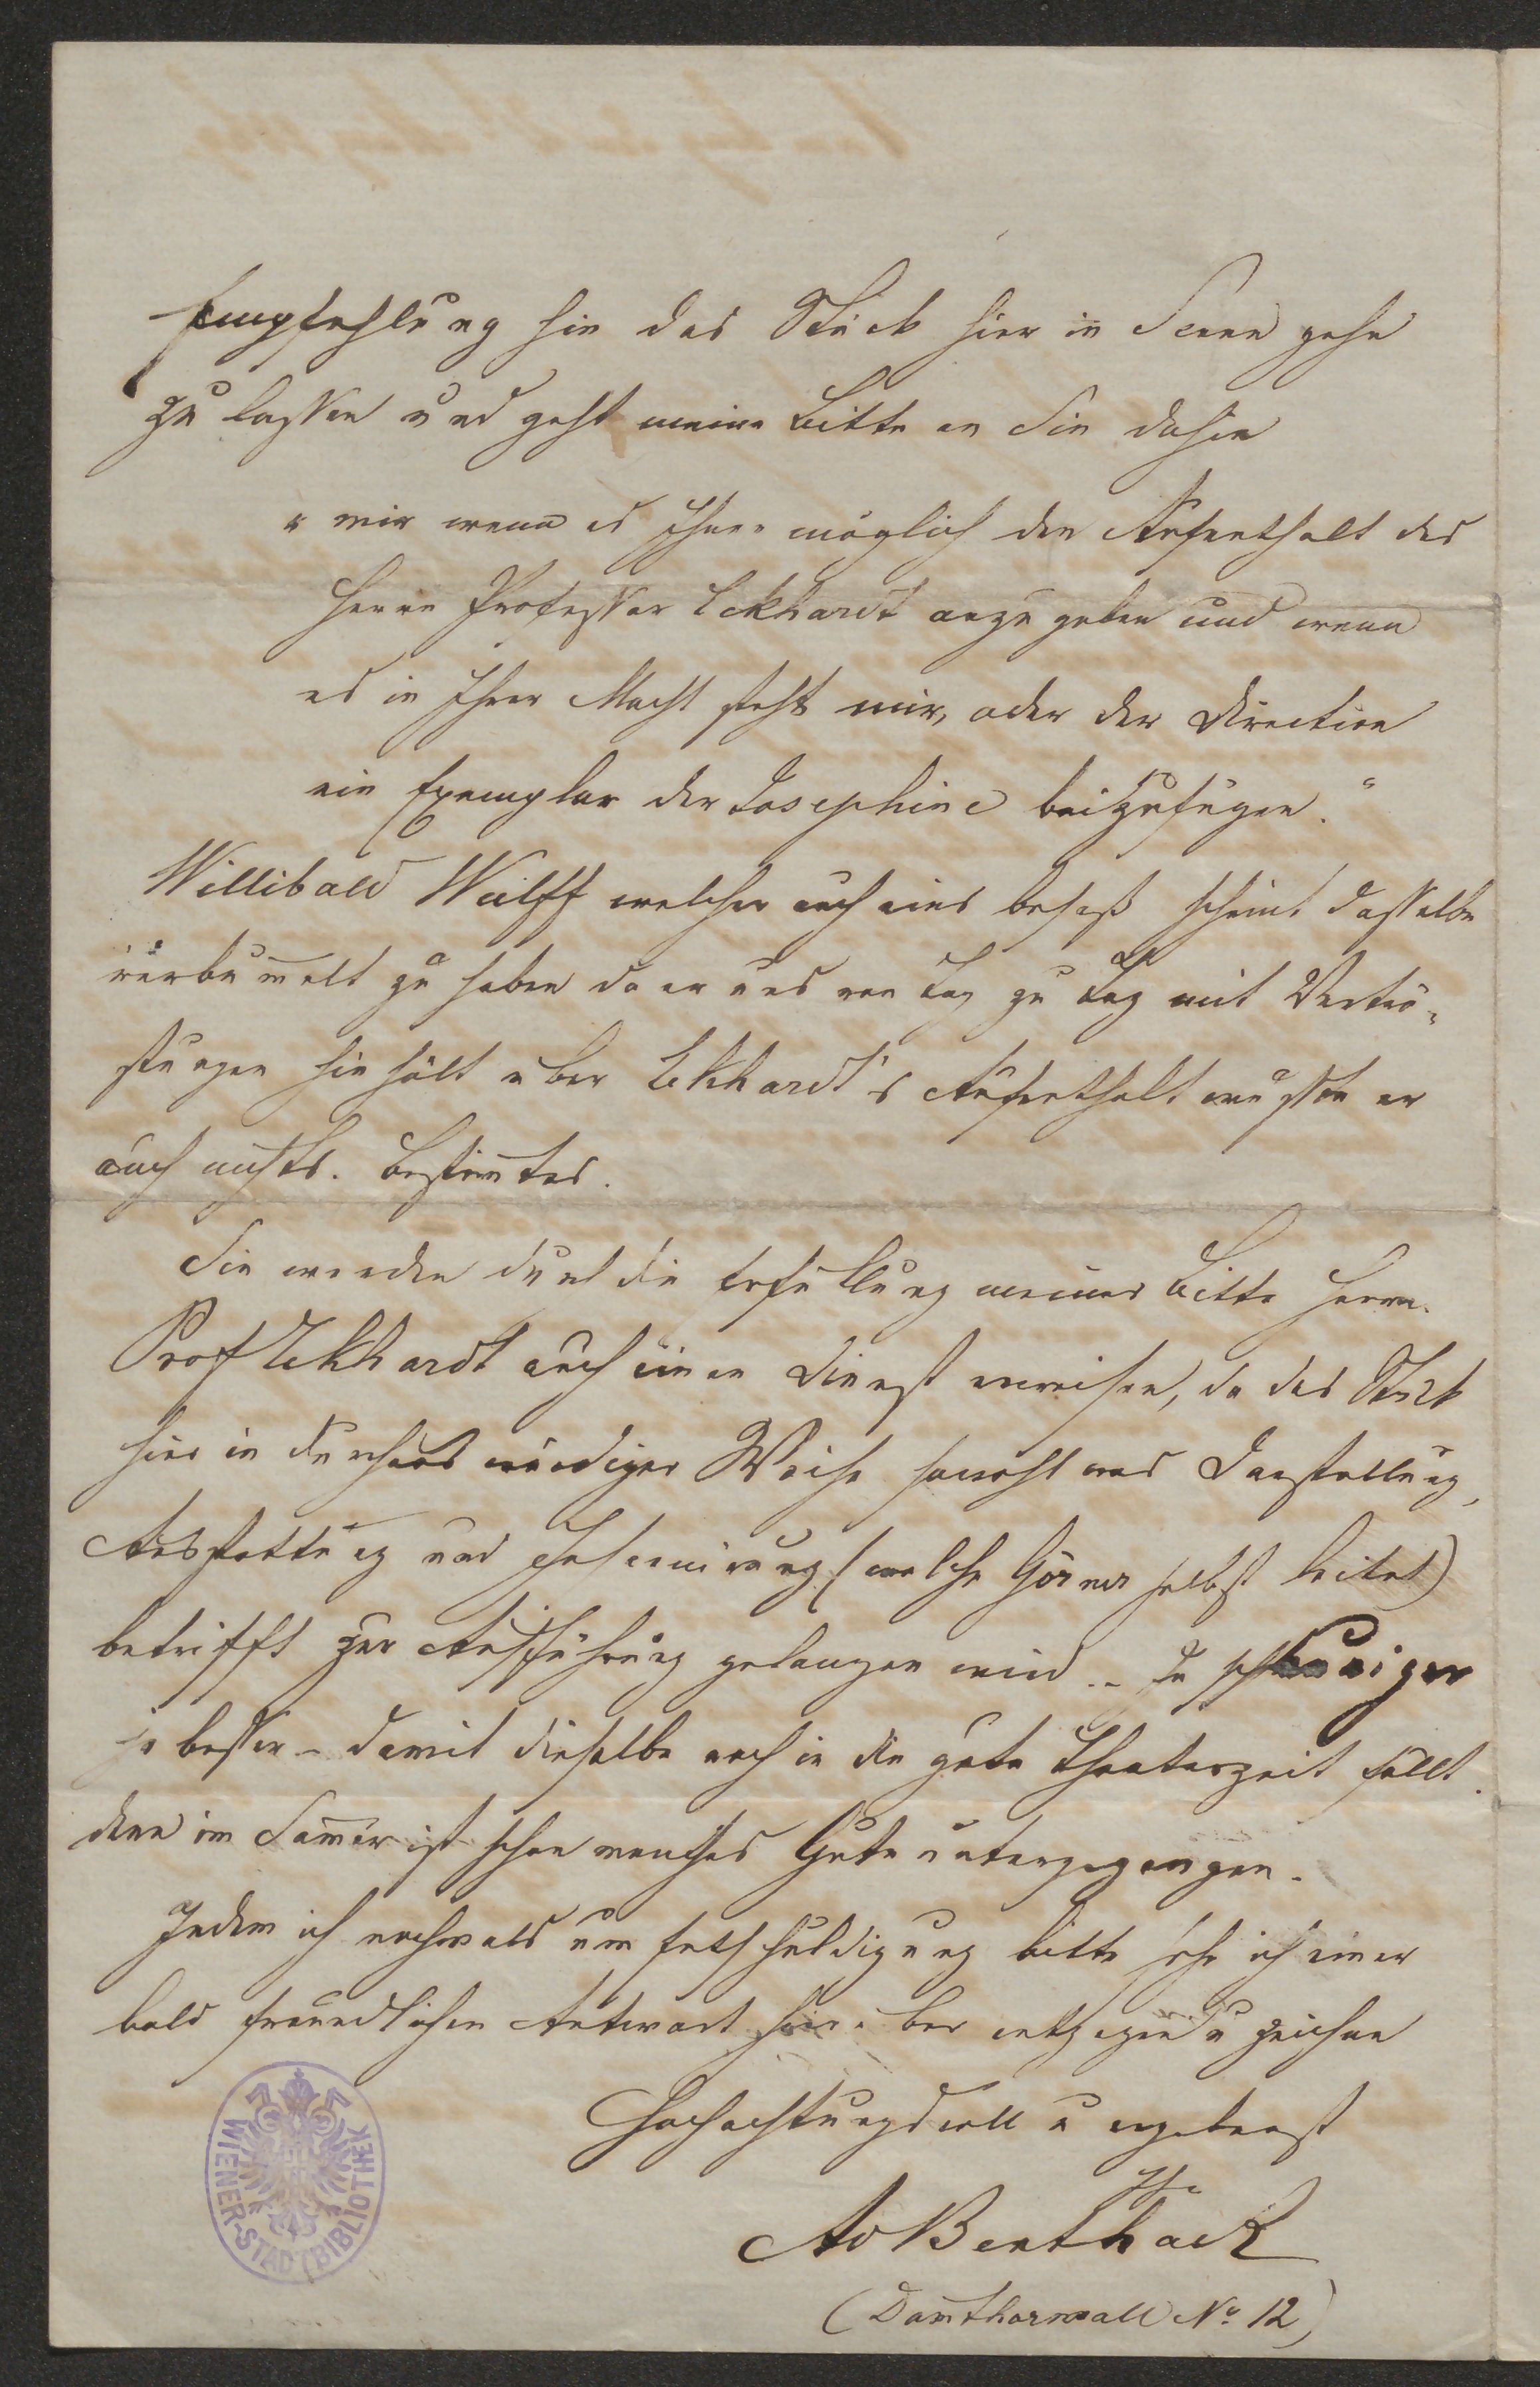 Empfehlung hin das Stück hier in Scene gehn
zu lassen und geht meine Bitte an Sie dahin
„mir wenn es Ihnen möglich den Aufenthalt des
Herrn Professor Eckhardt anzugeben und wenn
es in Ihrer Macht steht mir, oder der Direction
ein Exemplar der Josephine beizufügen.“
Willibald Wulff welcher auch eines besaß scheint dasselbe
verbum̅elt zu haben da er uns von Tag zu Tag mit Vertrö-
stungen hinhält über Eckhardt's Aufenthalt wußte er
auch nichts. Bestim̅tes.
Sie werden durch die Erfüllung meiner Bitte Herrn
Prof Eckhardt auch einen Dienst erweisen, da das Stück
hier in durchaus würdiger Weise sowohl was Darstellung,
Ausstattung und Inscenirung (welche Görner selbst leitet)
betrifft zur Aufführung gelangen wird. – Je schleuniger
je besser – damit dieselbe noch in die gute Theaterzeit fällt.
denn im Som̅er ist schon manches Gute untergegangen.
Indem ich nochmals um Entschuldigung bitte sehe ich einer
bald freundlichen Antwort hierüber entgegen u zeichne
Hochachtungsvoll u ergebenst
Ihr
Ad Benthack
(Dam̅thorwall No. 12)
WIENER-STADTBIBLIOTHEK